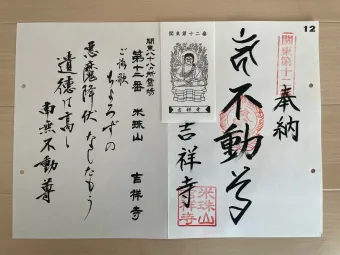 12
奉納
関東第十二
不動尊
吉祥寺
米珠山
吉祥寺
関東第十二番
吉祥寺
関東八十八ヵ所霊場
第十二番 米珠山 吉祥寺
ご詠歌
よろずの
悪魔降伏なしたもう
遺徳は高し
南無不動尊